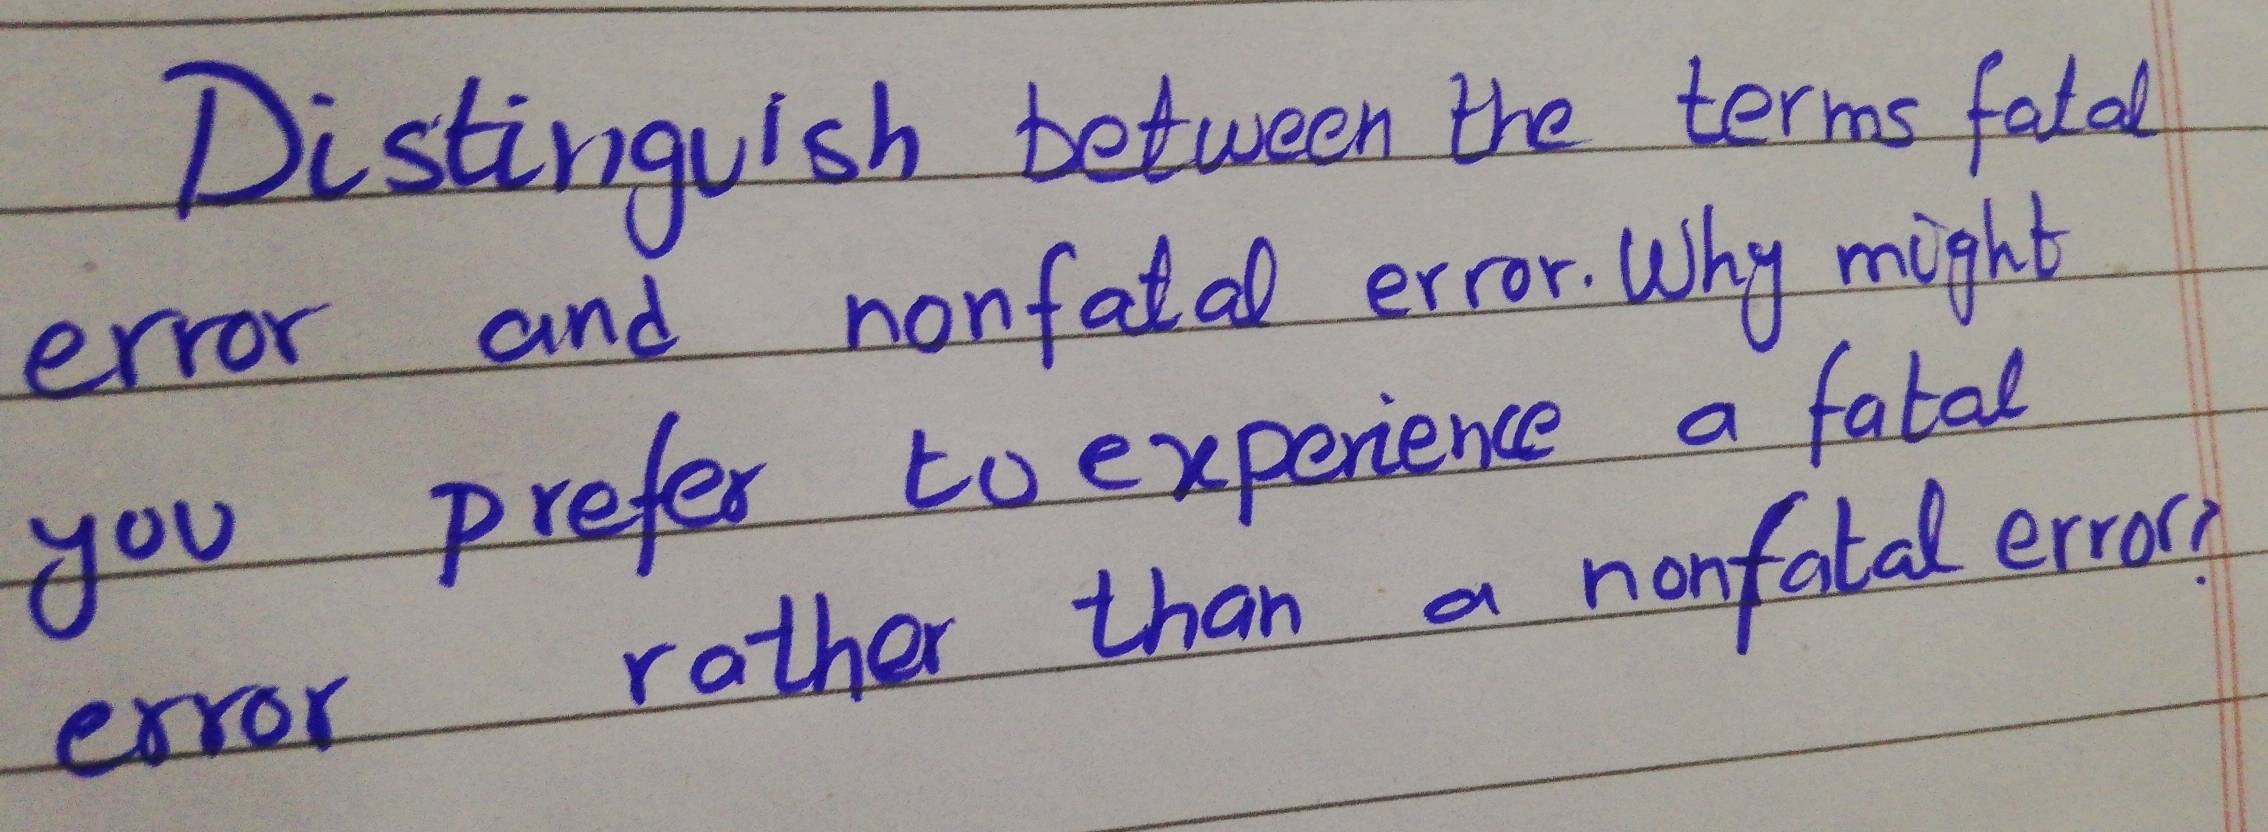 Distinguish between the terms fatal
error and nonfatal error. Why might
you prefer to experience a fatal
error rather than a nonfatal error?